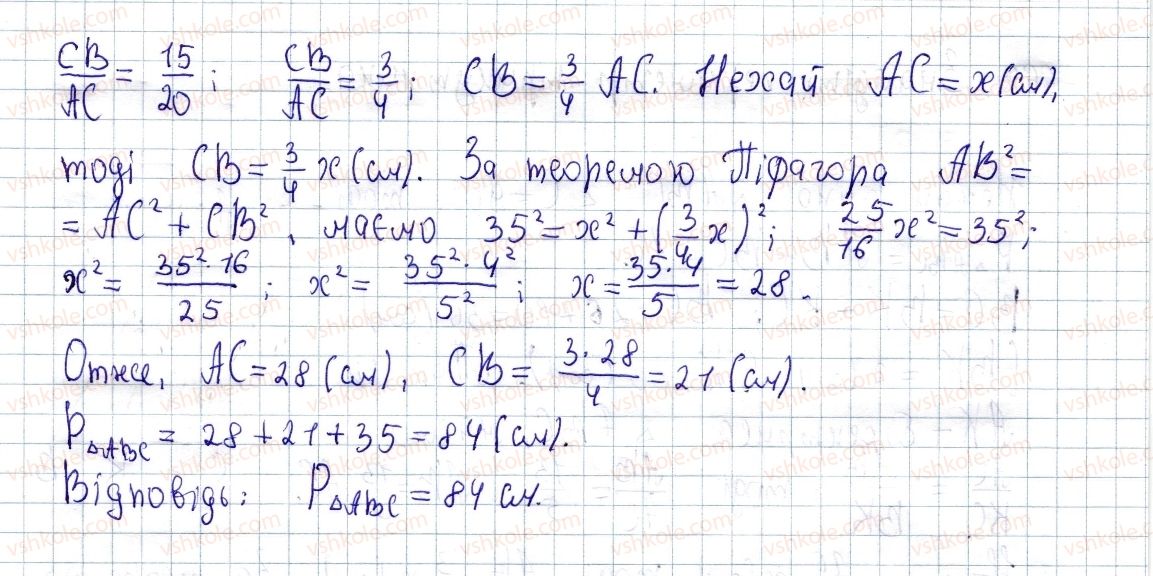 CB/AC = 15/20; CB/AC = 3/4; CB = 3/4 AC. Нехай AC = x (см),
тоді CB = 3/4 x (см). За теоремою Піфагора AB² =
= AC² + CB², маємо 35² = x² + (3/4 x)²; 25/16 x² = 35²;
x² = 35²·16/25; x² = 35²·4²/5²; x = 35·4/5 = 28.
Отже, AC = 28 (см), CB = 3·28/4 = 21 (см).
P△ABC = 28 + 21 + 35 = 84 (см).
Відповідь: P△ABC = 84 см.